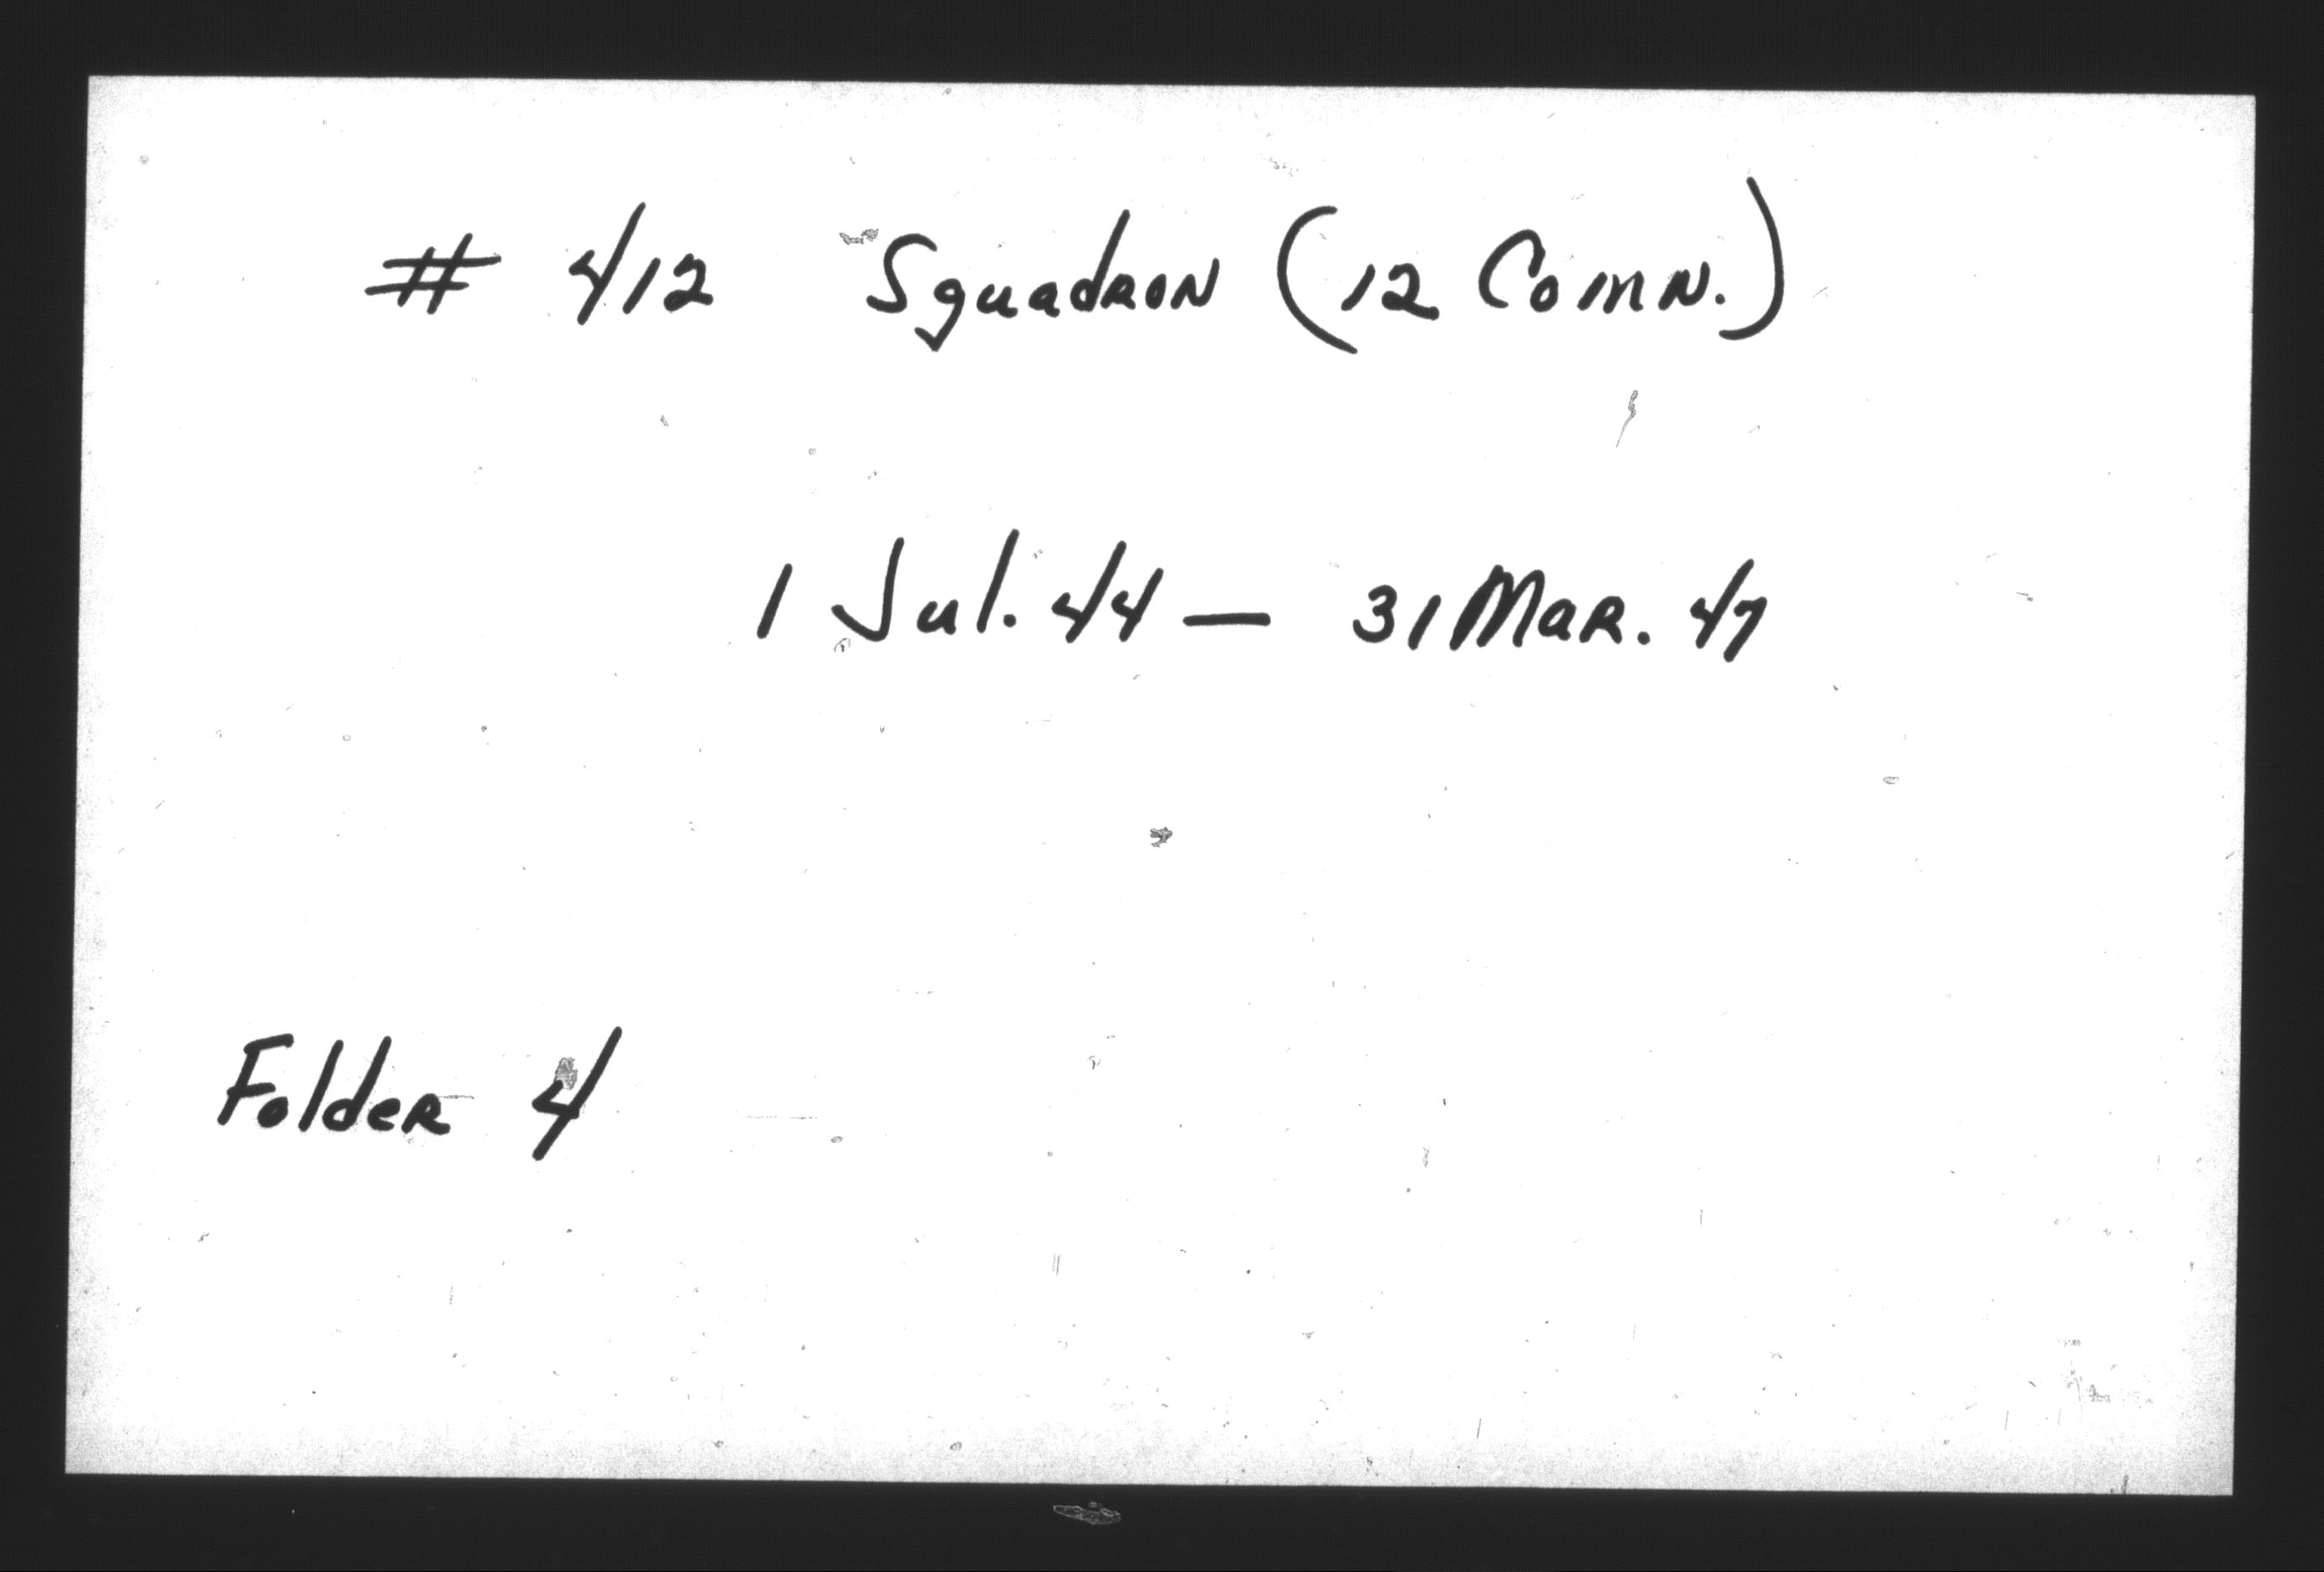 # 412 Squadron (12 Comn.)
1 Jul. 44 — 31 Mar. 47
Folder 4